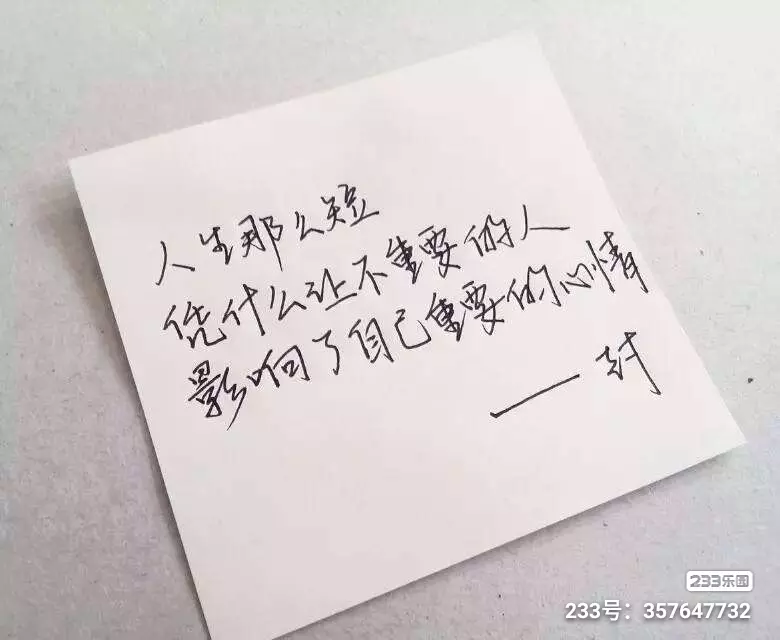 人生那么短
凭什么让不重要的人
影响了自己重要的心情
——封
233乐园
233号：357647732